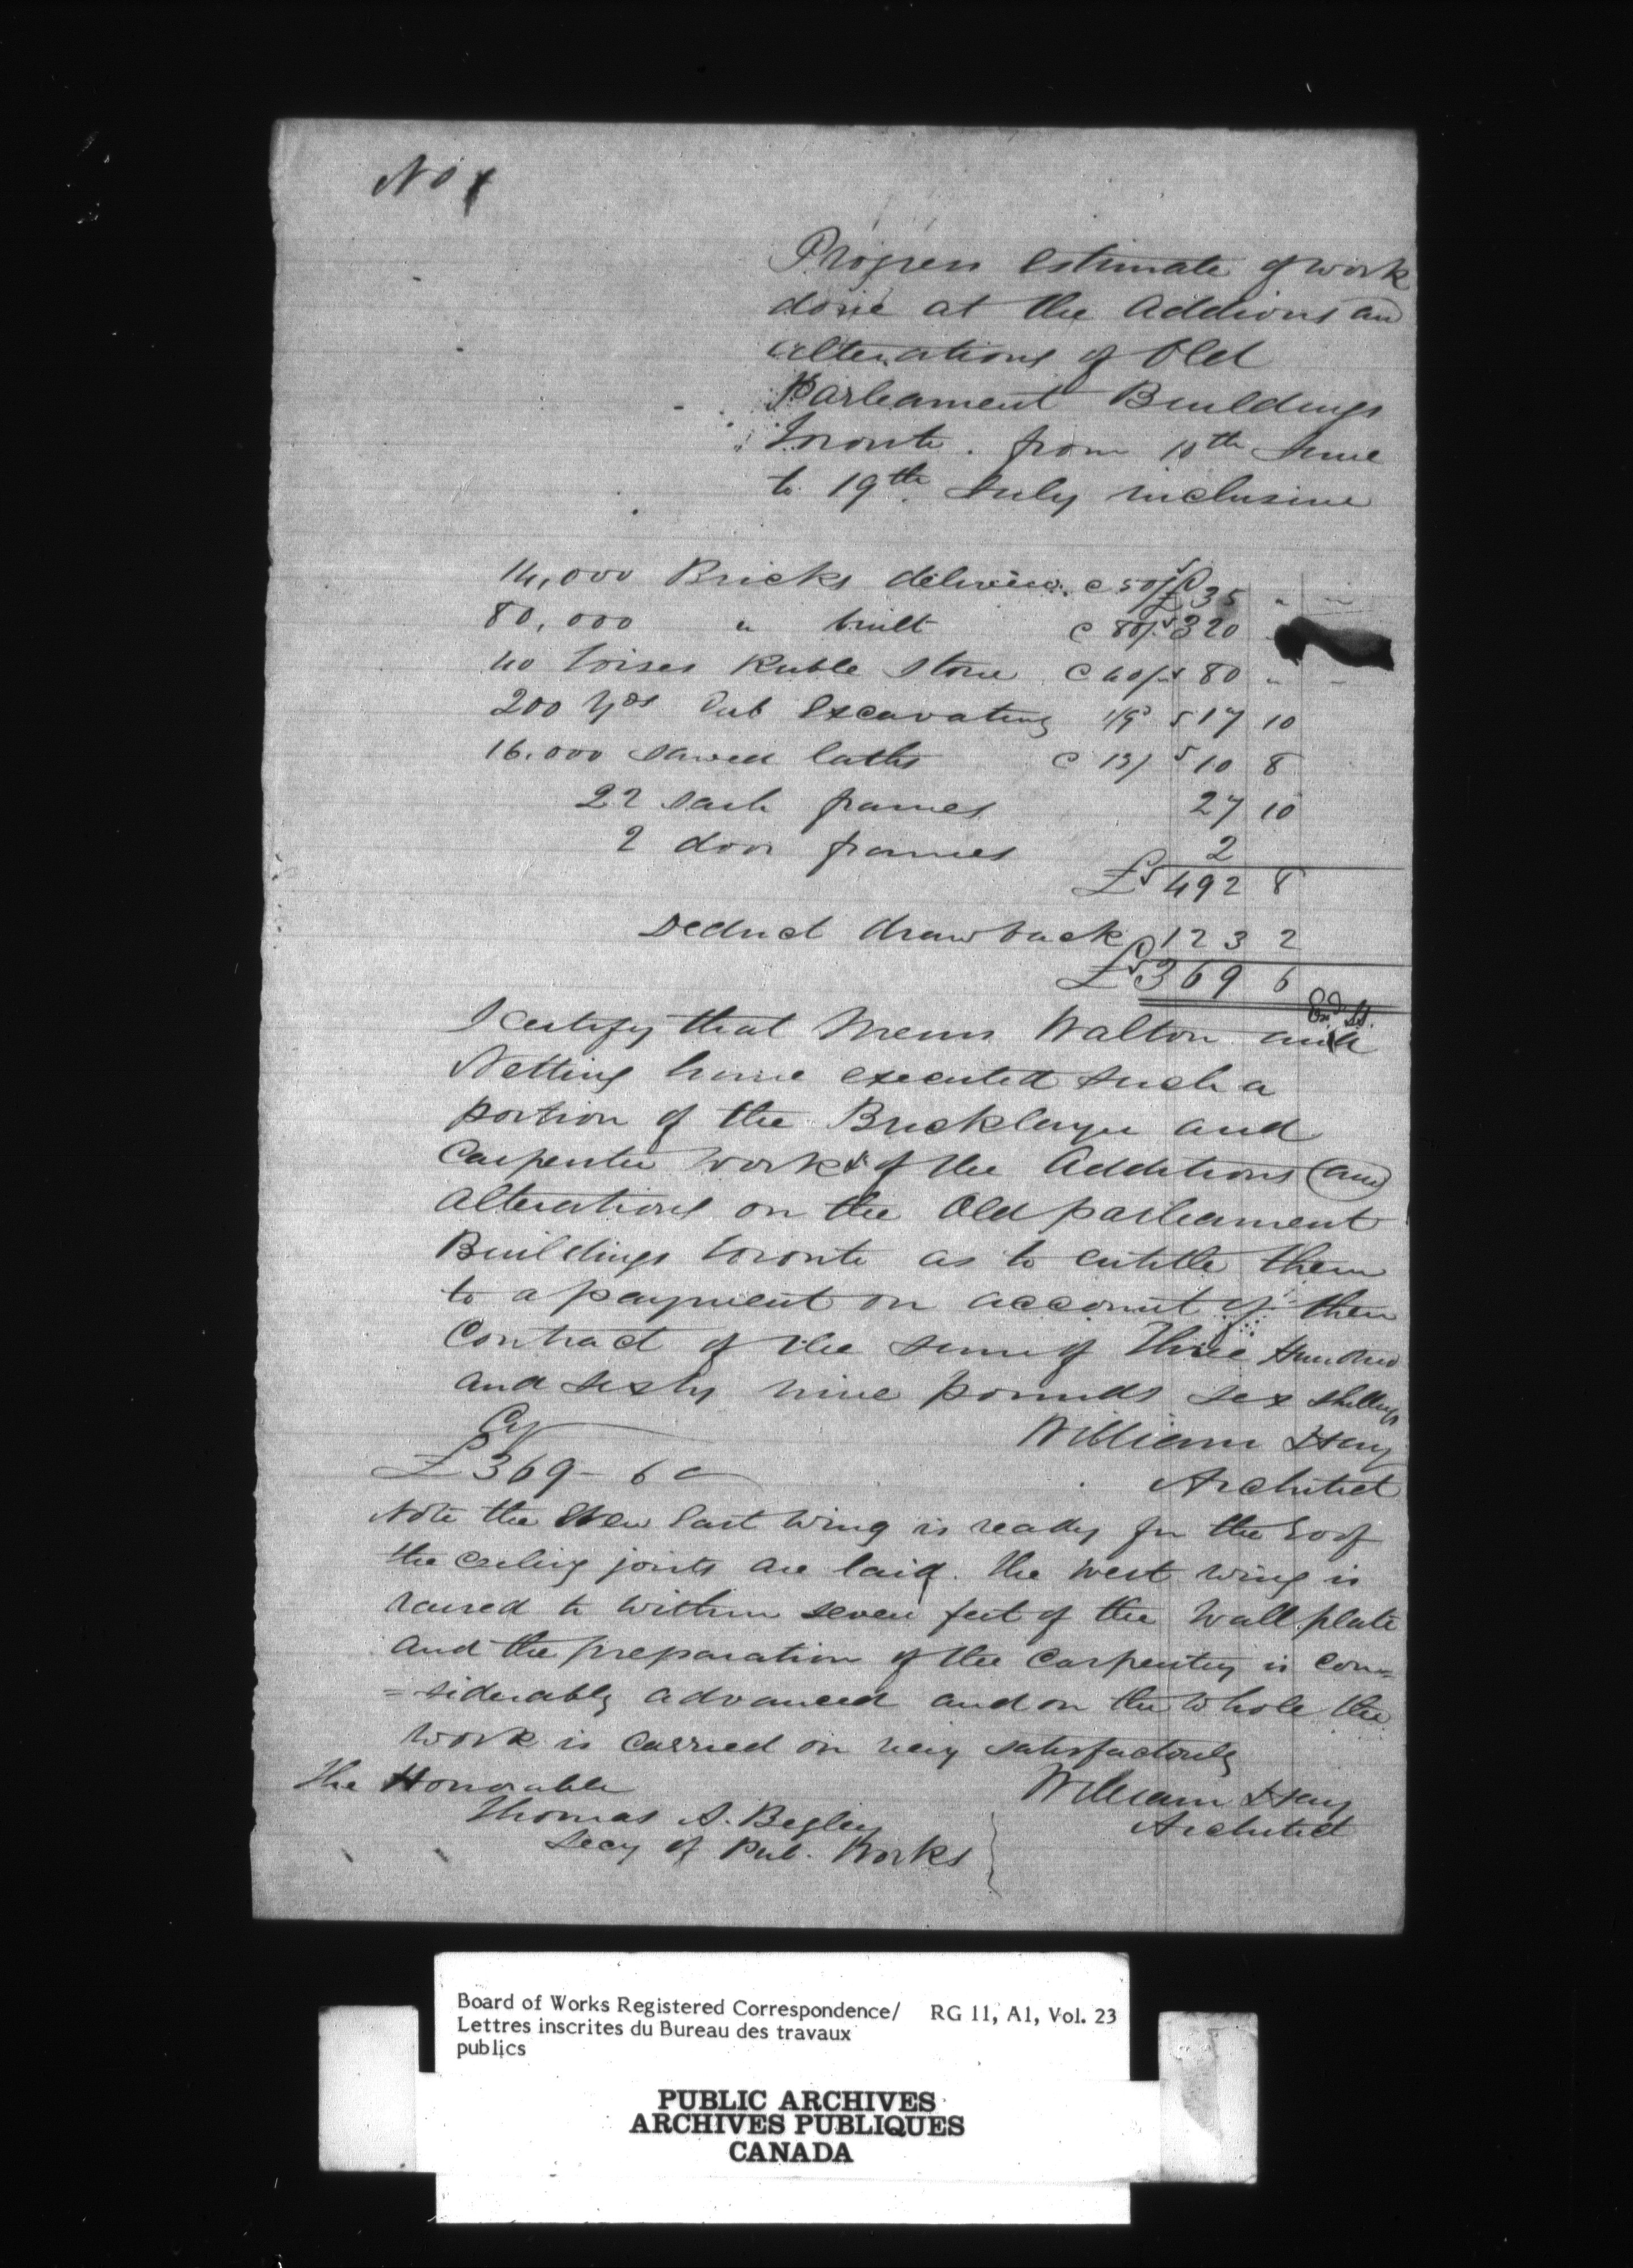 No 1
Progress estimate of work
done at the Addions and
alterations of Old
Parleament Buildings
Toronto. from 10th June
to 19th July inclusive
14,000 Bricks delivered. @ 50/ £ 35 " "
80,000 " built @ 80/ 320 "
40 toises Ruble Stone @ 40/ 80 " "
200 Yds Cub Excavating 1/9d 17 10
16.000 sawed laths @ 13/ 10 8
22 sash frames 27 10
2 door frames 2
£ 492 8
Deduct drawback 123 2
£ 369 6
I certify that Messrs Walton and
Netting have executed such a
portion of the Bricklayer and
Carpenter work of the Additions and
alterations on the Old parliament
Buildings toronto as to entitle them
to a payment on account of their
Contract of the sum of Three Hundred
and sixty nine pounds six shillings
Cy
£ 369 - 6
William Hay
Architect
Note the New East Wing is ready for the roof
the ceiling joists are laid. the West wing is
raised to within seven feet of the Wall plate
and the preparation of the Carpentry is con=
=siderably advanced and on the whole the
work is carried on very satisfactorily
The Honorable
Thomas A. Begley
Secy of Pub. Works
William Hay
Architect
Board of Works Registered Correspondence/ RG 11, A1, Vol. 23
Lettres inscrites du Bureau des travaux
publics
PUBLIC ARCHIVES
ARCHIVES PUBLIQUES
CANADA